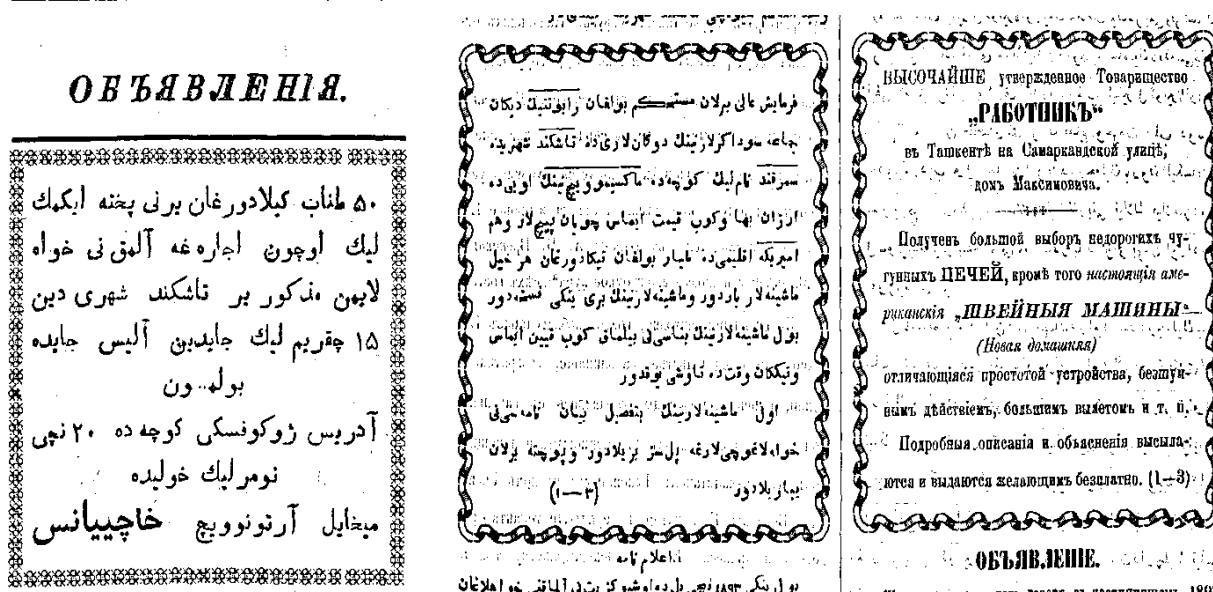 ОБЪЯВЛЕНІЯ.
۵۰ طناب کیلادورغان برنی پخته ایکمك
لیك اوچون اجاره غه آلمق نی خواه
لایمن مذکور بر تاشکند شهری دین
۱۵ چقریم لیك جایدین آلیس جایده
بولسون
آدریس ژوکوفسکی کوچه ده ۲۰ نچی
نومرلیك خولیده
میخایل آرتونوویچ خاچییانس
فرمایش عالی برلان مستحکم بولغان رابوتنیك دیکان
جماعه سوداکرلارنینك دوکان لاری ده تاشکند شهریده
سمرقند نام لیك کوچه ده ماکسیموویچ نینك اویی ده
ارزان بها وکوب قیمت ایماس چویان پیچ لار وهم
امریکه اقلیمی ده طیار بولغان تیکادورغان هر خیل
ماشینه لار باردور وماشینه لارنینك بری ینکی
بول ماشینه لارنینك بناسی نی بیلمای کوب قیین ایماس
وتیککان وقت ده تاوشی یوقدور
اول ماشینه لارنینك بتفصیل بیان نامه سی نی
خواه لاغوچی لارغه پل سز بریلادور و پوچته برلان
ییباریلادور (۳—۱)
اعلام نامه
ВЫСОЧАЙШЕ утвержденное Товарищество
„РАБОТНИКЪ“
въ Ташкентѣ на Самаркандской улицѣ,
домъ Максимовича.
Полученъ большой выборъ недорогихъ чу-
гунныхъ ПЕЧЕЙ, кромѣ того настоящія аме-
риканскія „ШВЕЙНЫЯ МАШИНЫ“
(Новая домашняя)
отличающіяся простотой устройства, безшум-
нымъ дѣйствіемъ, большимъ вылетомъ и т. п.
Подробныя описанія и объясненія высыла-
ются и выдаются желающимъ безплатно. (1—3)
ОБЪЯВЛЕНІЕ.